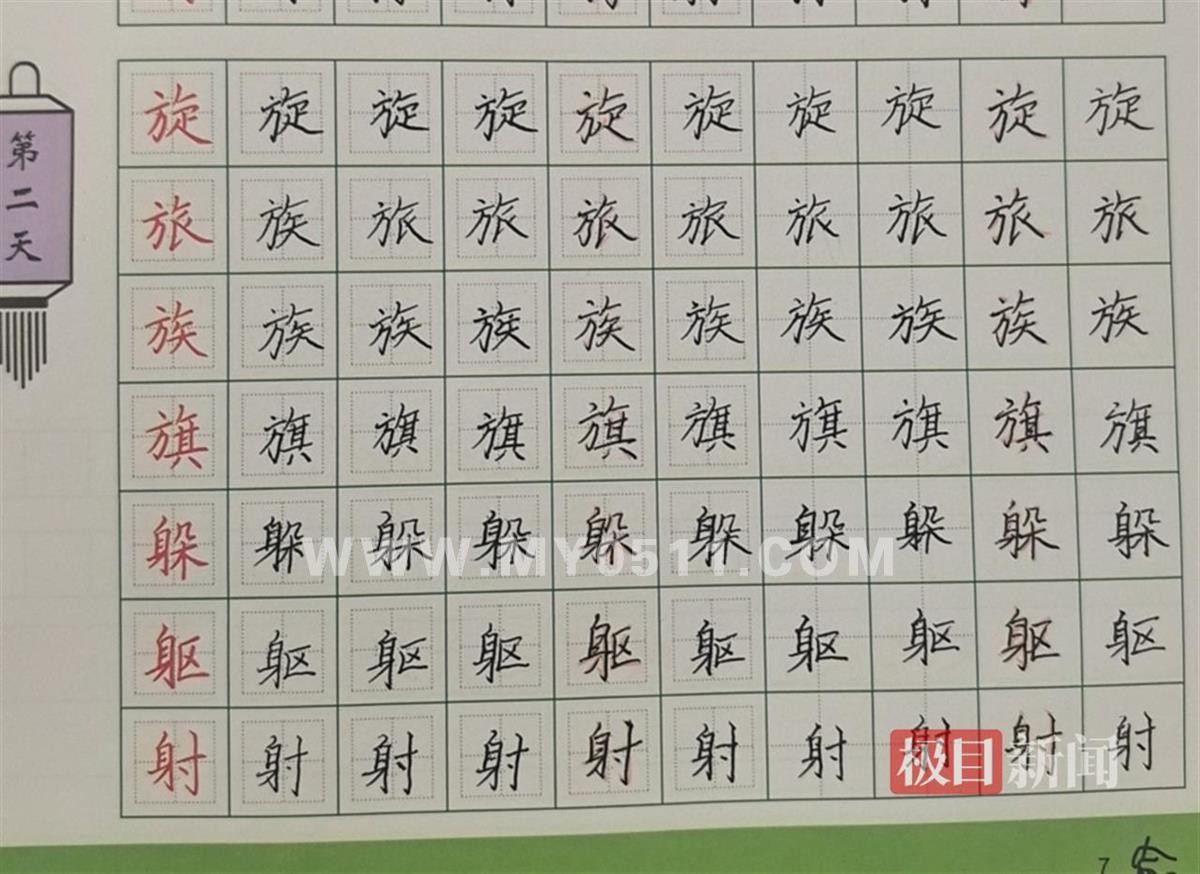 第二天
旋 旋 旋 旋 旋 旋 旋 旋 旋 旋
旅 族 旅 旅 旅 旅 旅 旅 旅 旅
族 族 族 族 族 族 族 族 族 族
旗 旗 旗 旗 旗 旗 旗 旗 旗 旗
躲 躲 躲 躲 躲 躲 躲 躲 躲 躲
WWW.MY0511.COM
躯 躯 躯 躯 躯 躯 躯 躯 躯 躯
射 射 射 射 射 射 射 射 射 射
极目新闻
7